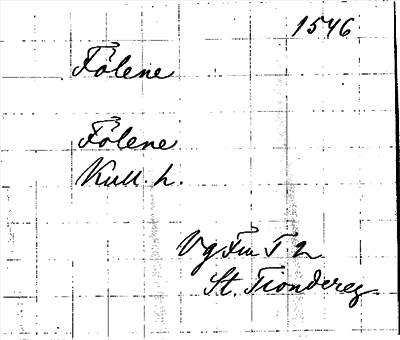 1546
Fölene
Fölene
Kull. h.
Vg Fu T 2
St. Tiondereg.